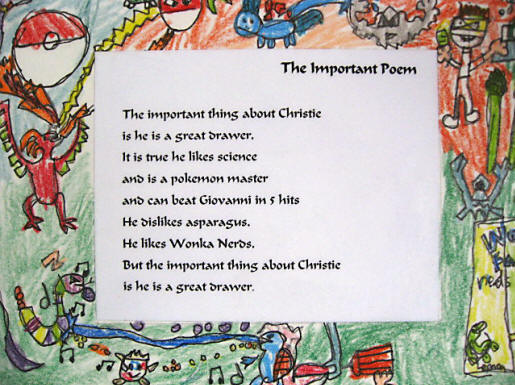 The Important Poem
The important thing about Christie
is he is a great drawer.
It is true he likes science
and is a pokemon master
and can beat Giovanni in 5 hits
He dislikes asparagus.
He likes Wonka Nerds.
But the important thing about Christie
is he is a great drawer.